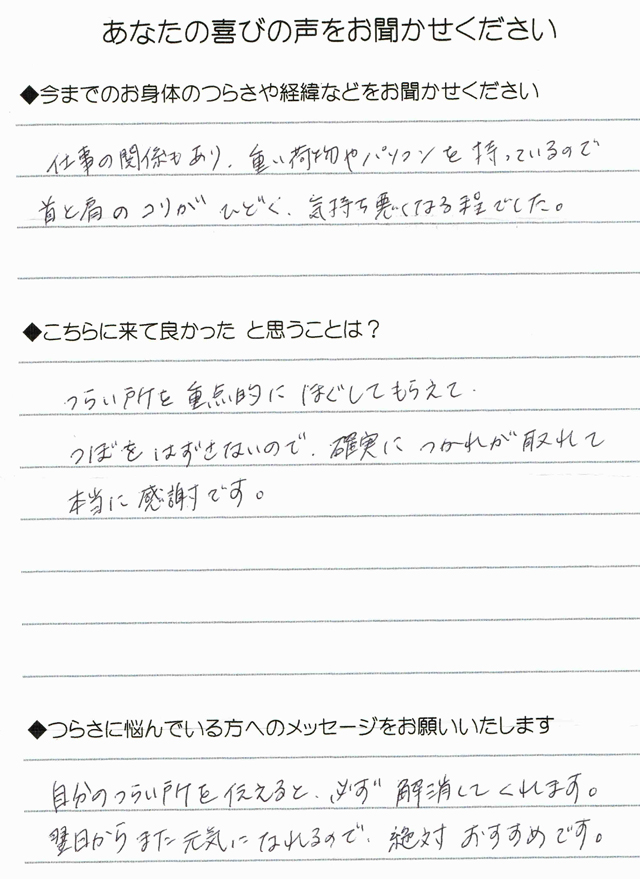 あなたの喜びの声をお聞かせください
◆今までのお身体のつらさや経緯などをお聞かせください
仕事の関係もあり、重い荷物やパソコンを持っているので
首と肩のコリがひどく、気持ち悪くなる程でした。
◆こちらに来て良かった と思うことは？
つらい所を重点的にほぐしてもらえて、
つぼをはずさないので、確実につかれが取れて
本当に感謝です。
◆つらさに悩んでいる方へのメッセージをお願いいたします
自分のつらい所を伝えると、必ず解消してくれます。
翌日からまた元気になれるので、絶対おすすめです。